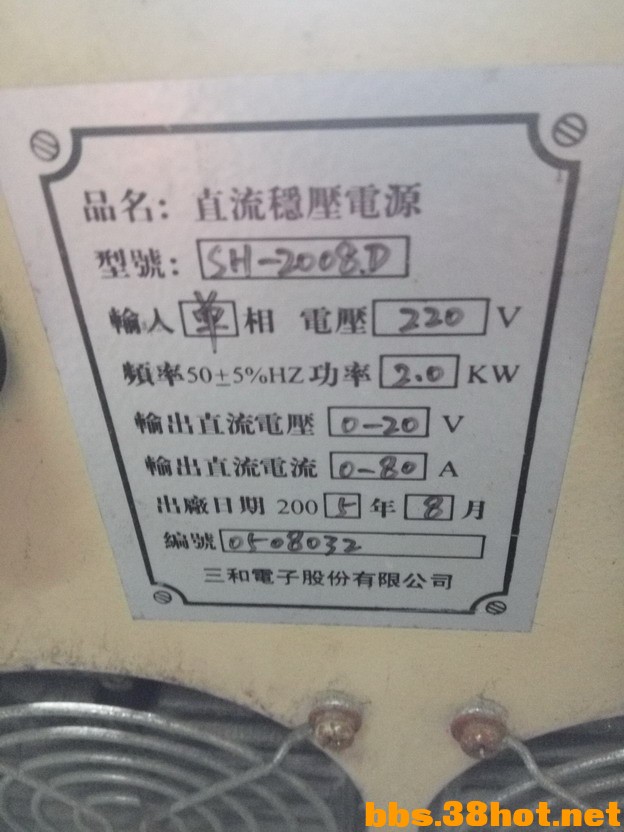 品名: 直流穩壓電源
型號: SH-2008.D
輸入 单 相 電壓 220 V
頻率50±5%HZ功率 2.0 KW
輸出直流電壓 0-20 V
輸出直流電流 0-80 A
出廠日期 2005年 8月
編號 0508032
三和電子股份有限公司
bbs.38hot.net